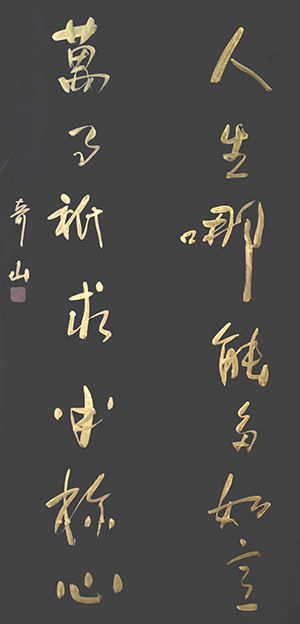 人生哪能多如意
萬事祇求半称心
奇山